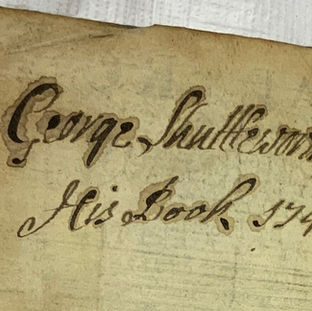 George Shuttlewor
His Book 174